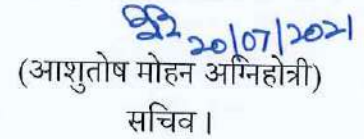 20/07/2021
(आशुतोष मोहन अग्निहोत्री)
सचिव।